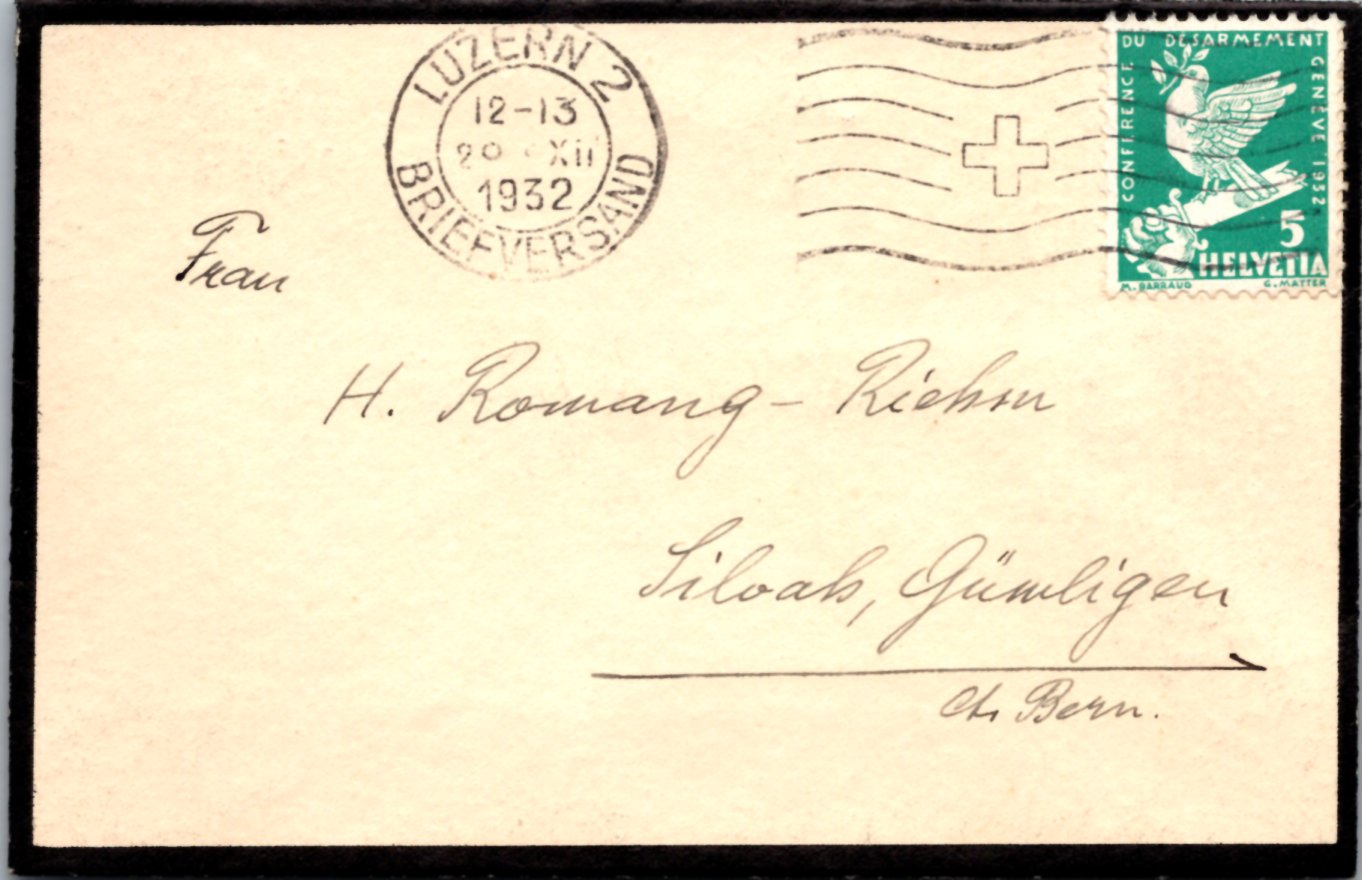 LUZERN 2
12-13
XII
1932
BRIEFVERSAND
CONFERENCE DU DESARMEMENT GENEVE 1932
5
HELVETIA
M. BARRAUD G. MATTER
Frau
H. Romang-
Siloah, Gümligen
Ct. Bern.